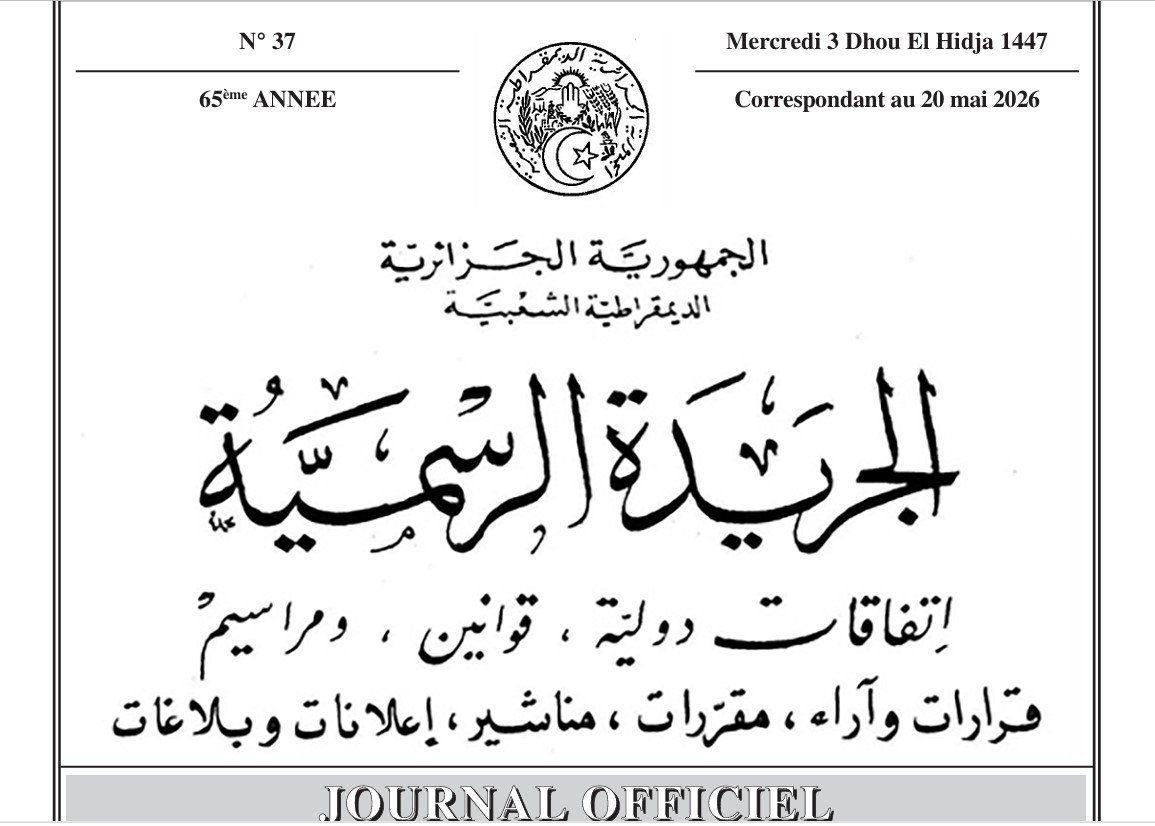 N° 37
Mercredi 3 Dhou El Hidja 1447
65ème ANNEE
Correspondant au 20 mai 2026
الجمهوريّة الجزائريّة
الديمقراطيّة الشعبيّة
الجريدة الرسميّة
اتفاقات دوليّة ، قوانين ، ومراسيم
قرارات وآراء ، مقرّرات ، مناشير ، إعلانات وبلاغات
JOURNAL OFFICIEL